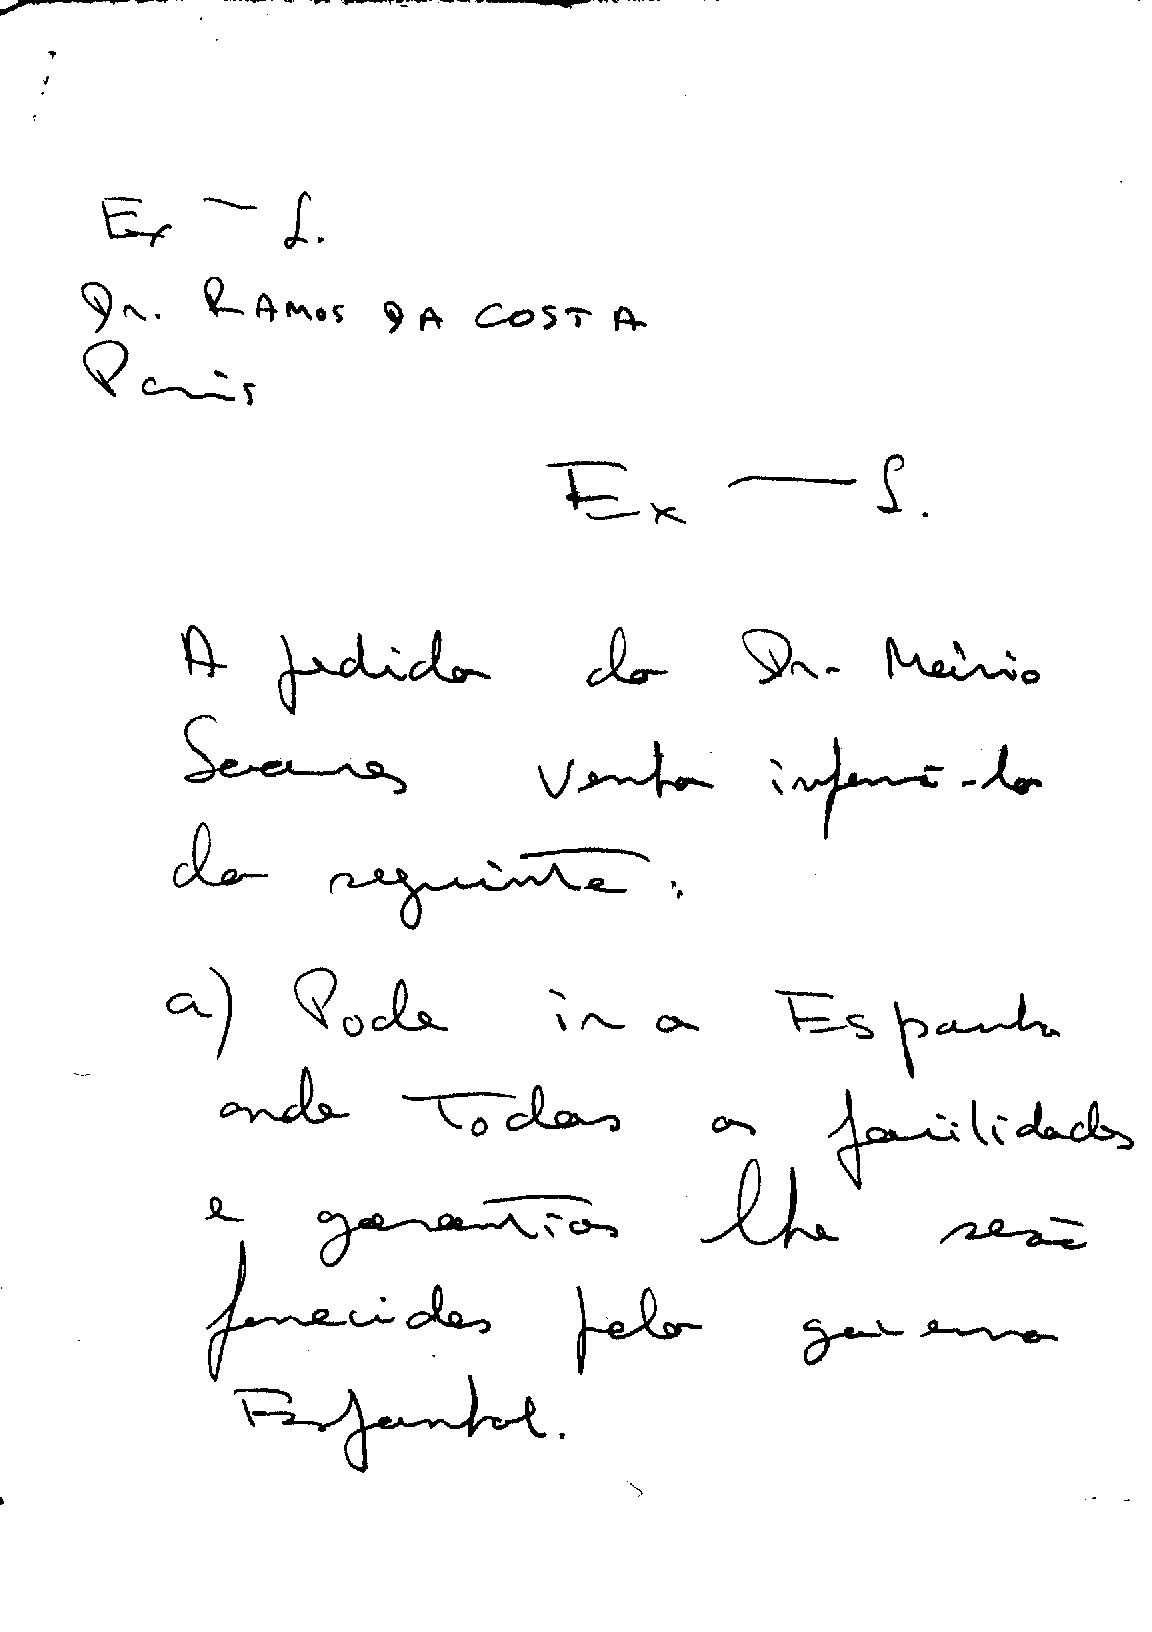 Ex — S.
Dr. RAMOS DA COSTA
Paris
Ex — S.
A pedido do Dr. Mário
Soares venho informá-lo
do seguinte:
a) Pode ir a Espanha
onde todas as facilidades
e garantias lhe serão
fornecidas pelo governo
Espanhol.